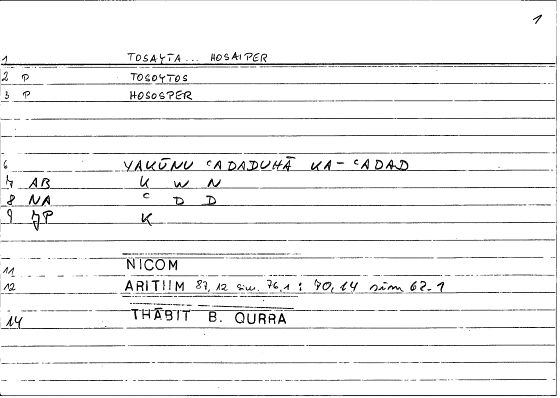 1
1 TOSAYTA... HOSAIPER
2 P TOSOYTOS
3 P HOSOSPER
6 YAKŪNU ᶜADADUHĀ KA-ᶜADAD
7 AB K W N
8 NA ᶜ D D
9 JP K
11 NICOM
12 ARITIIM 87,12 sim. 76,1 : 70,14 sim 62.1
14 THĀBIT B. QURRA